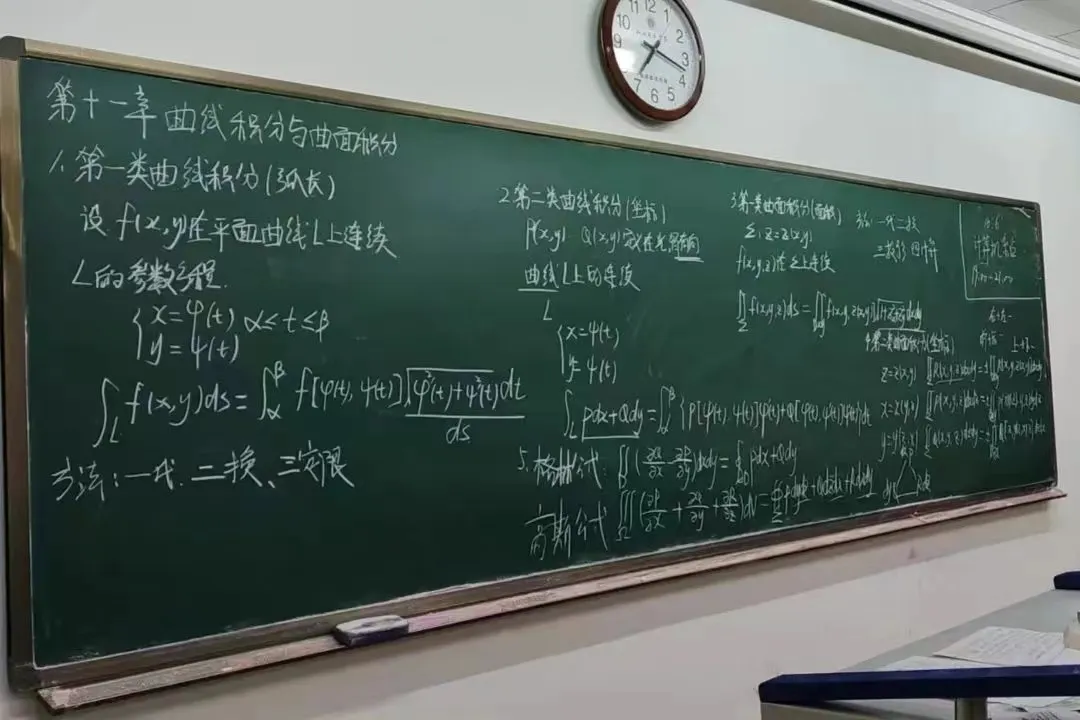 第十一章 曲线积分与曲面积分
1. 第一类曲线积分(弧长)
设 f(x,y)在平面曲线L上连续
L的参数方程.
{x=φ(t) α≤t≤β
y=ψ(t)
∫_L f(x,y)ds=∫_α^β f[φ(t), ψ(t)]√(φ'²(t)+ψ'²(t))dt
ds
方法:一代、二换、三定限
2 第二类曲线积分(坐标)
P(x,y) Q(x,y)定义在光滑有向
曲线L上的连续
L
{x=φ(t)
y=ψ(t)
∫_L Pdx+Qdy=∫_α^β {P[φ(t), ψ(t)]φ'(t)+Q[φ(t), ψ(t)]ψ'(t)}dt
5. 格林公式: ∬_D (∂Q/∂x - ∂P/∂y)dxdy=∮ Pdx+Qdy
高斯公式 ∭_Ω (∂P/∂x + ∂Q/∂y + ∂R/∂z)dV=∯_Σ Pdydz+Qdzdx+Rdxdy
3 第一类曲面积分(面积)
Σ: z=z(x,y)
f(x,y,z)在Σ上连续
∬_Σ f(x,y,z)ds=∬_Dxy f(x,y,z(x,y))√(1+z²x+z²y)dxdy
方法:一代二换
三投影 四计算
4 第二类曲面积分(坐标)
z=z(x,y)
x=x(y,z)
12
1
2
3
4
5
6
7
9
10
11